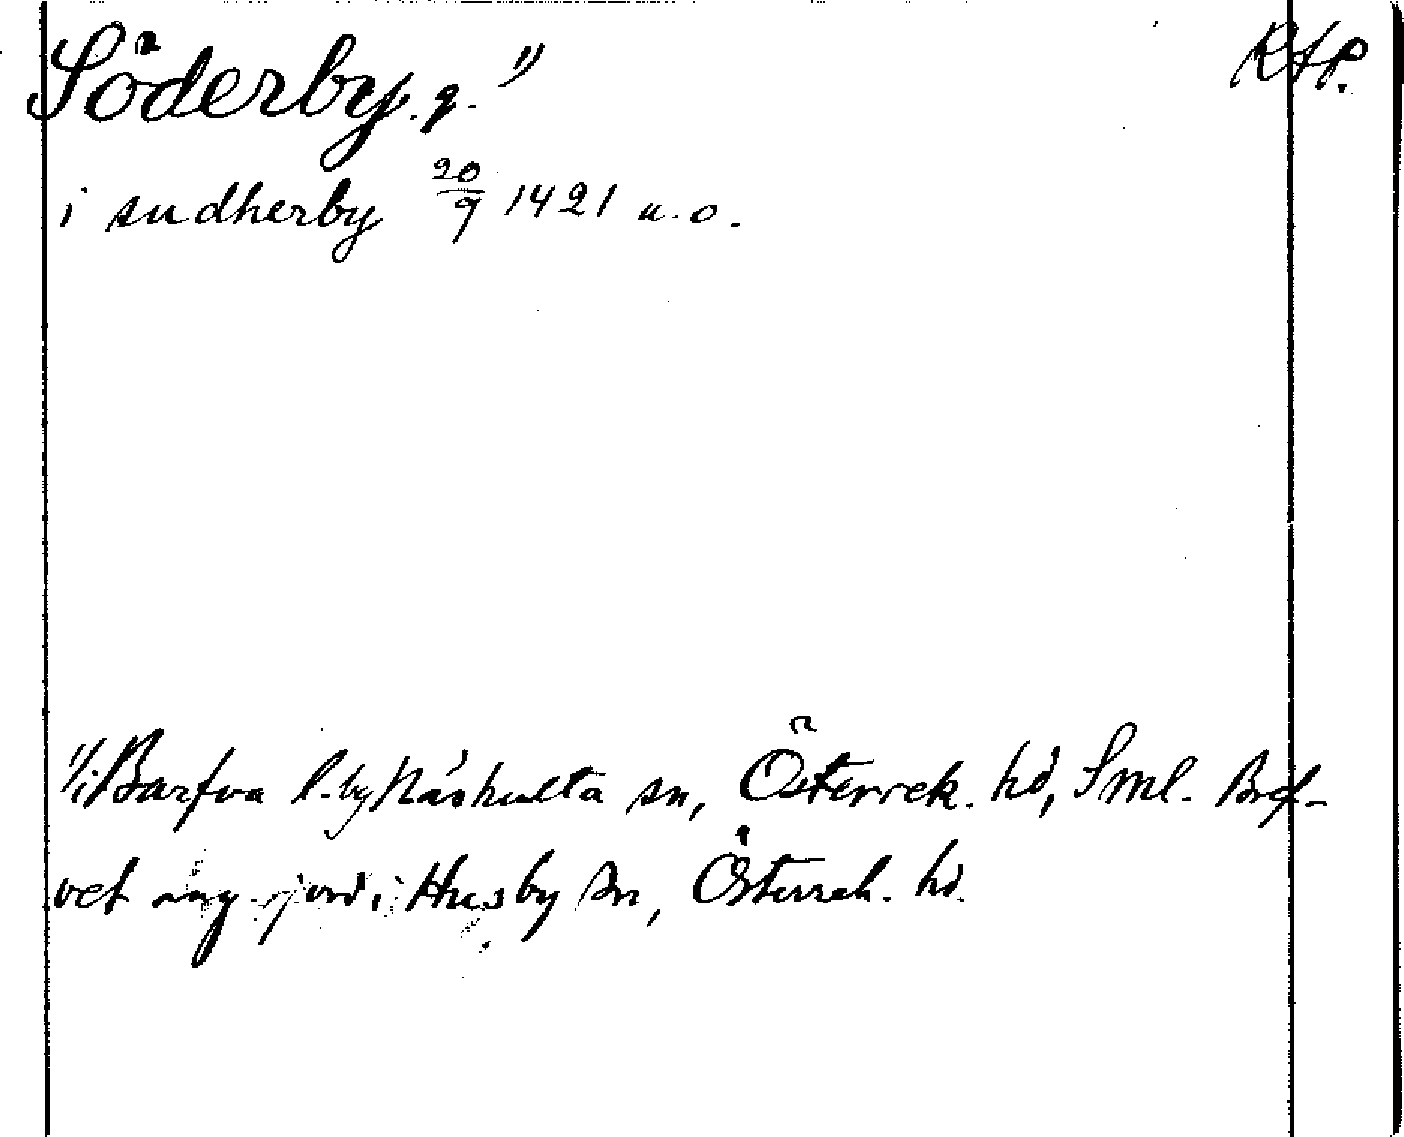 Söderby. g. 1) RAP.
i sudherby 20/9 1421 u. o.
1) i Barfva l. by Näshulta sn, Österrek. hd, Sml. Bref-
vet ang. jord i Husby sn, Österrek. hd.